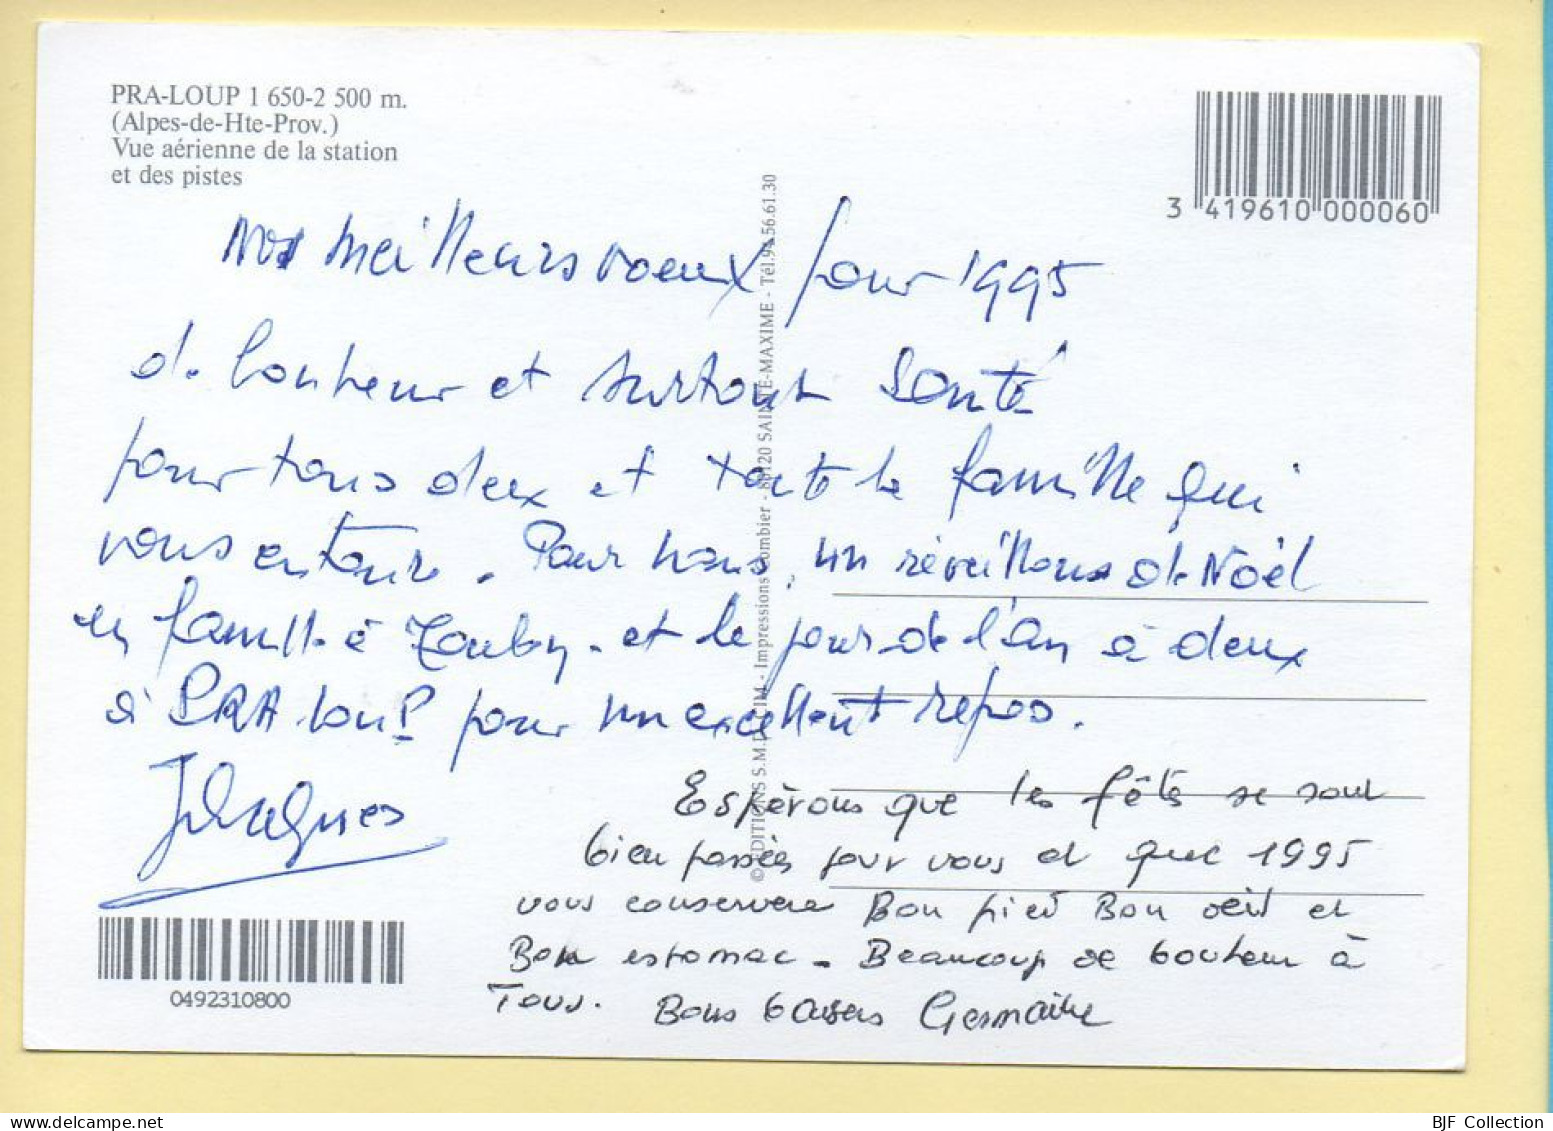 PRA-LOUP 1 650-2 500 m.
(Alpes-de-Hte-Prov.)
Vue aérienne de la station
et des pistes
3 419610 000060
Nos meilleurs voeux pour 1995
de bonheur et surtout santé
pour tous deux et toute la famille qui
vous entoure. Pour nous, un réveillons de Noël
en famille à Toulon. et le jour de l'An à deux
à PRA louP pour un excellent repos.
Jacques
Espérons que les fêtes se sont
bien passées pour vous et que 1995
vous conservera Bon pied Bon oeil et
Bon estomac. Beaucoup de bonheur à
Tous. Bons baisers Germaine
© EDITIONS S.M.D. CIM - Impressions Combier - 83120 SAINTE-MAXIME - Tél.94.56.61.30
0492310800
BJF Collection